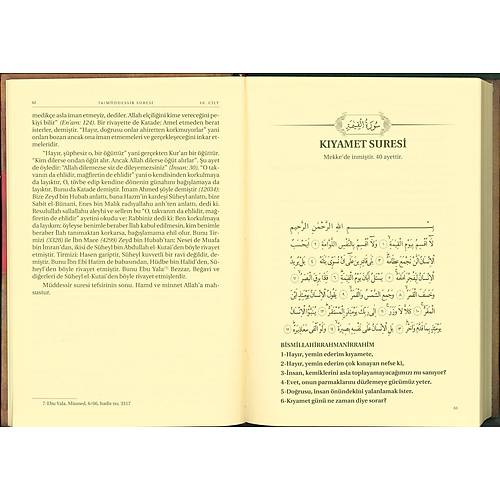 M
74/MÜDDESSİR SURESİ
10. CİLT
medikçe asla iman etmeyiz, dediler. Allah elçiliğini kime vereceğini pe-
kiyi bilir" (En'am: 124). Bir rivayette de Katade: Amel etmeden berat
isterler, demiştir. "Hayır, doğrusu onlar ahiretten korkmuyorlar" yani
onları bozan ancak ona iman etmemeleri ve gerçekleşeceğini inkar etme-
leridir.
"Hayır, şüphesiz o, bir öğüttür" yani gerçekten Kur'an bir öğüttür.
"Kim dilerse ondan öğüt alır. Ancak Allah dilerse öğüt alırlar". Şu ayet
de öyledir: "Allah dilemezse siz de dileyemezsiniz" (İnsan: 30), "O takva-
nın da ehlidir, mağfiretin de ehlidir" yani o kendisinden korkulmaya
da layıktır, O, tövbe edip kendine dönenin günahını bağışlamaya da
layıktır. Bunu da Katade demiştir. İmam Ahmed şöyle demiştir (12034):
Bize Zeyd bin Hubab anlattı, bana Hazm'ın kardeşi Süheyl anlattı, bize
Sabit el-Bünani, Enes bin Malik radıyallahu anh'ten anlattı, dedi ki:
Resulullah sallallahu aleyhi ve sellem bu "O, takvanın da ehlidir, mağ-
firetin de ehlidir" ayetini okudu ve: Rabbiniz dedi ki: Ben korkulmaya
da layıkım; öyleyse benimle beraber ilah kabul edilmesin, kim benimle
beraber ilah tanımaktan korkarsa, bağışlamama ehil olur. Bunu Tir-
mizi (3328) ile İbn Mace (4299) Zeyd bin Hubab'tan; Nesei de Muafa
bin İmran'dan, ikisi de Süheyl bin Abdullah el-Kutai'den böyle rivayet
etmiştir. Tirmizi: Hasen gariptir, Süheyl kuvvetli bir ravi değildir, de-
miştir. Bunu İbn Ebi Hatim de babasından, Hüdbe bin Halid'den, Sü-
heyl'den böyle rivayet etmiştir. Bunu Ebu Yala⁷ Bezzar, Beğavi ve
diğerleri de Süheyl el-Kutai'den böyle rivayet etmişlerdir.
Müddessir suresi tefsirinin sonu. Hamd ve minnet Allah'a mah-
sustur.
7- Ebu Yala, Müsned, 6/66, hadis no. 3317
سُورَةُ الْقِيٰمَةِ
KIYAMET SURESİ
Mekke'de inmiştir. 40 ayettir.
بِسْمِ اللهِ الرَّحْمٰنِ الرَّحِيمِ
لَا أُقْسِمُ بِيَوْمِ الْقِيٰمَةِ ﴿١﴾ وَلَا أُقْسِمُ بِالنَّفْسِ اللَّوَّامَةِ ﴿٢﴾ أَيَحْسَبُ
الْإِنْسَانُ أَلَّنْ نَجْمَعَ عِظَامَهُ ﴿٣﴾ بَلٰى قَادِرِينَ عَلٰى أَنْ نُسَوِّيَ بَنَانَهُ ﴿٤﴾ بَلْ يُرِيدُ
الْإِنْسَانُ لِيَفْجُرَ أَمَامَهُ ﴿٥﴾ يَسْأَلُ أَيَّانَ يَوْمُ الْقِيٰمَةِ ﴿٦﴾ فَإِذَا بَرِقَ الْبَصَرُ ﴿٧﴾
وَخَسَفَ الْقَمَرُ ﴿٨﴾ وَجُمِعَ الشَّمْسُ وَالْقَمَرُ ﴿٩﴾ يَقُولُ الْإِنْسَانُ يَوْمَئِذٍ أَيْنَ
الْمَفَرُّ ﴿١٠﴾ كَلَّا لَا وَزَرَ ﴿١١﴾ إِلٰى رَبِّكَ يَوْمَئِذٍ الْمُسْتَقَرُّ ﴿١٢﴾ يُنَبَّؤُا الْإِنْسَانُ
يَوْمَئِذٍ بِمَا قَدَّمَ وَأَخَّرَ ﴿١٣﴾ بَلِ الْإِنْسَانُ عَلٰى نَفْسِهِ بَصِيرَةٌ ﴿١٤﴾ وَلَوْ أَلْقٰى مَعَاذِيرَهُ ﴿١٥﴾
BİSMİLLAHİRRAHMANİRRAHİM
1-Hayır, yemin ederim kıyamete,
2-Hayır, yemin ederim çok kınayan nefse ki,
3-İnsan, kemiklerini asla toplayamayacağımızı mı sanıyor?
4-Evet, onun parmaklarını düzlemeye gücümüz yeter.
5-Doğrusu, insan önündekini yalanlamak ister.
6-Kıyamet günü ne zaman diye sorar?